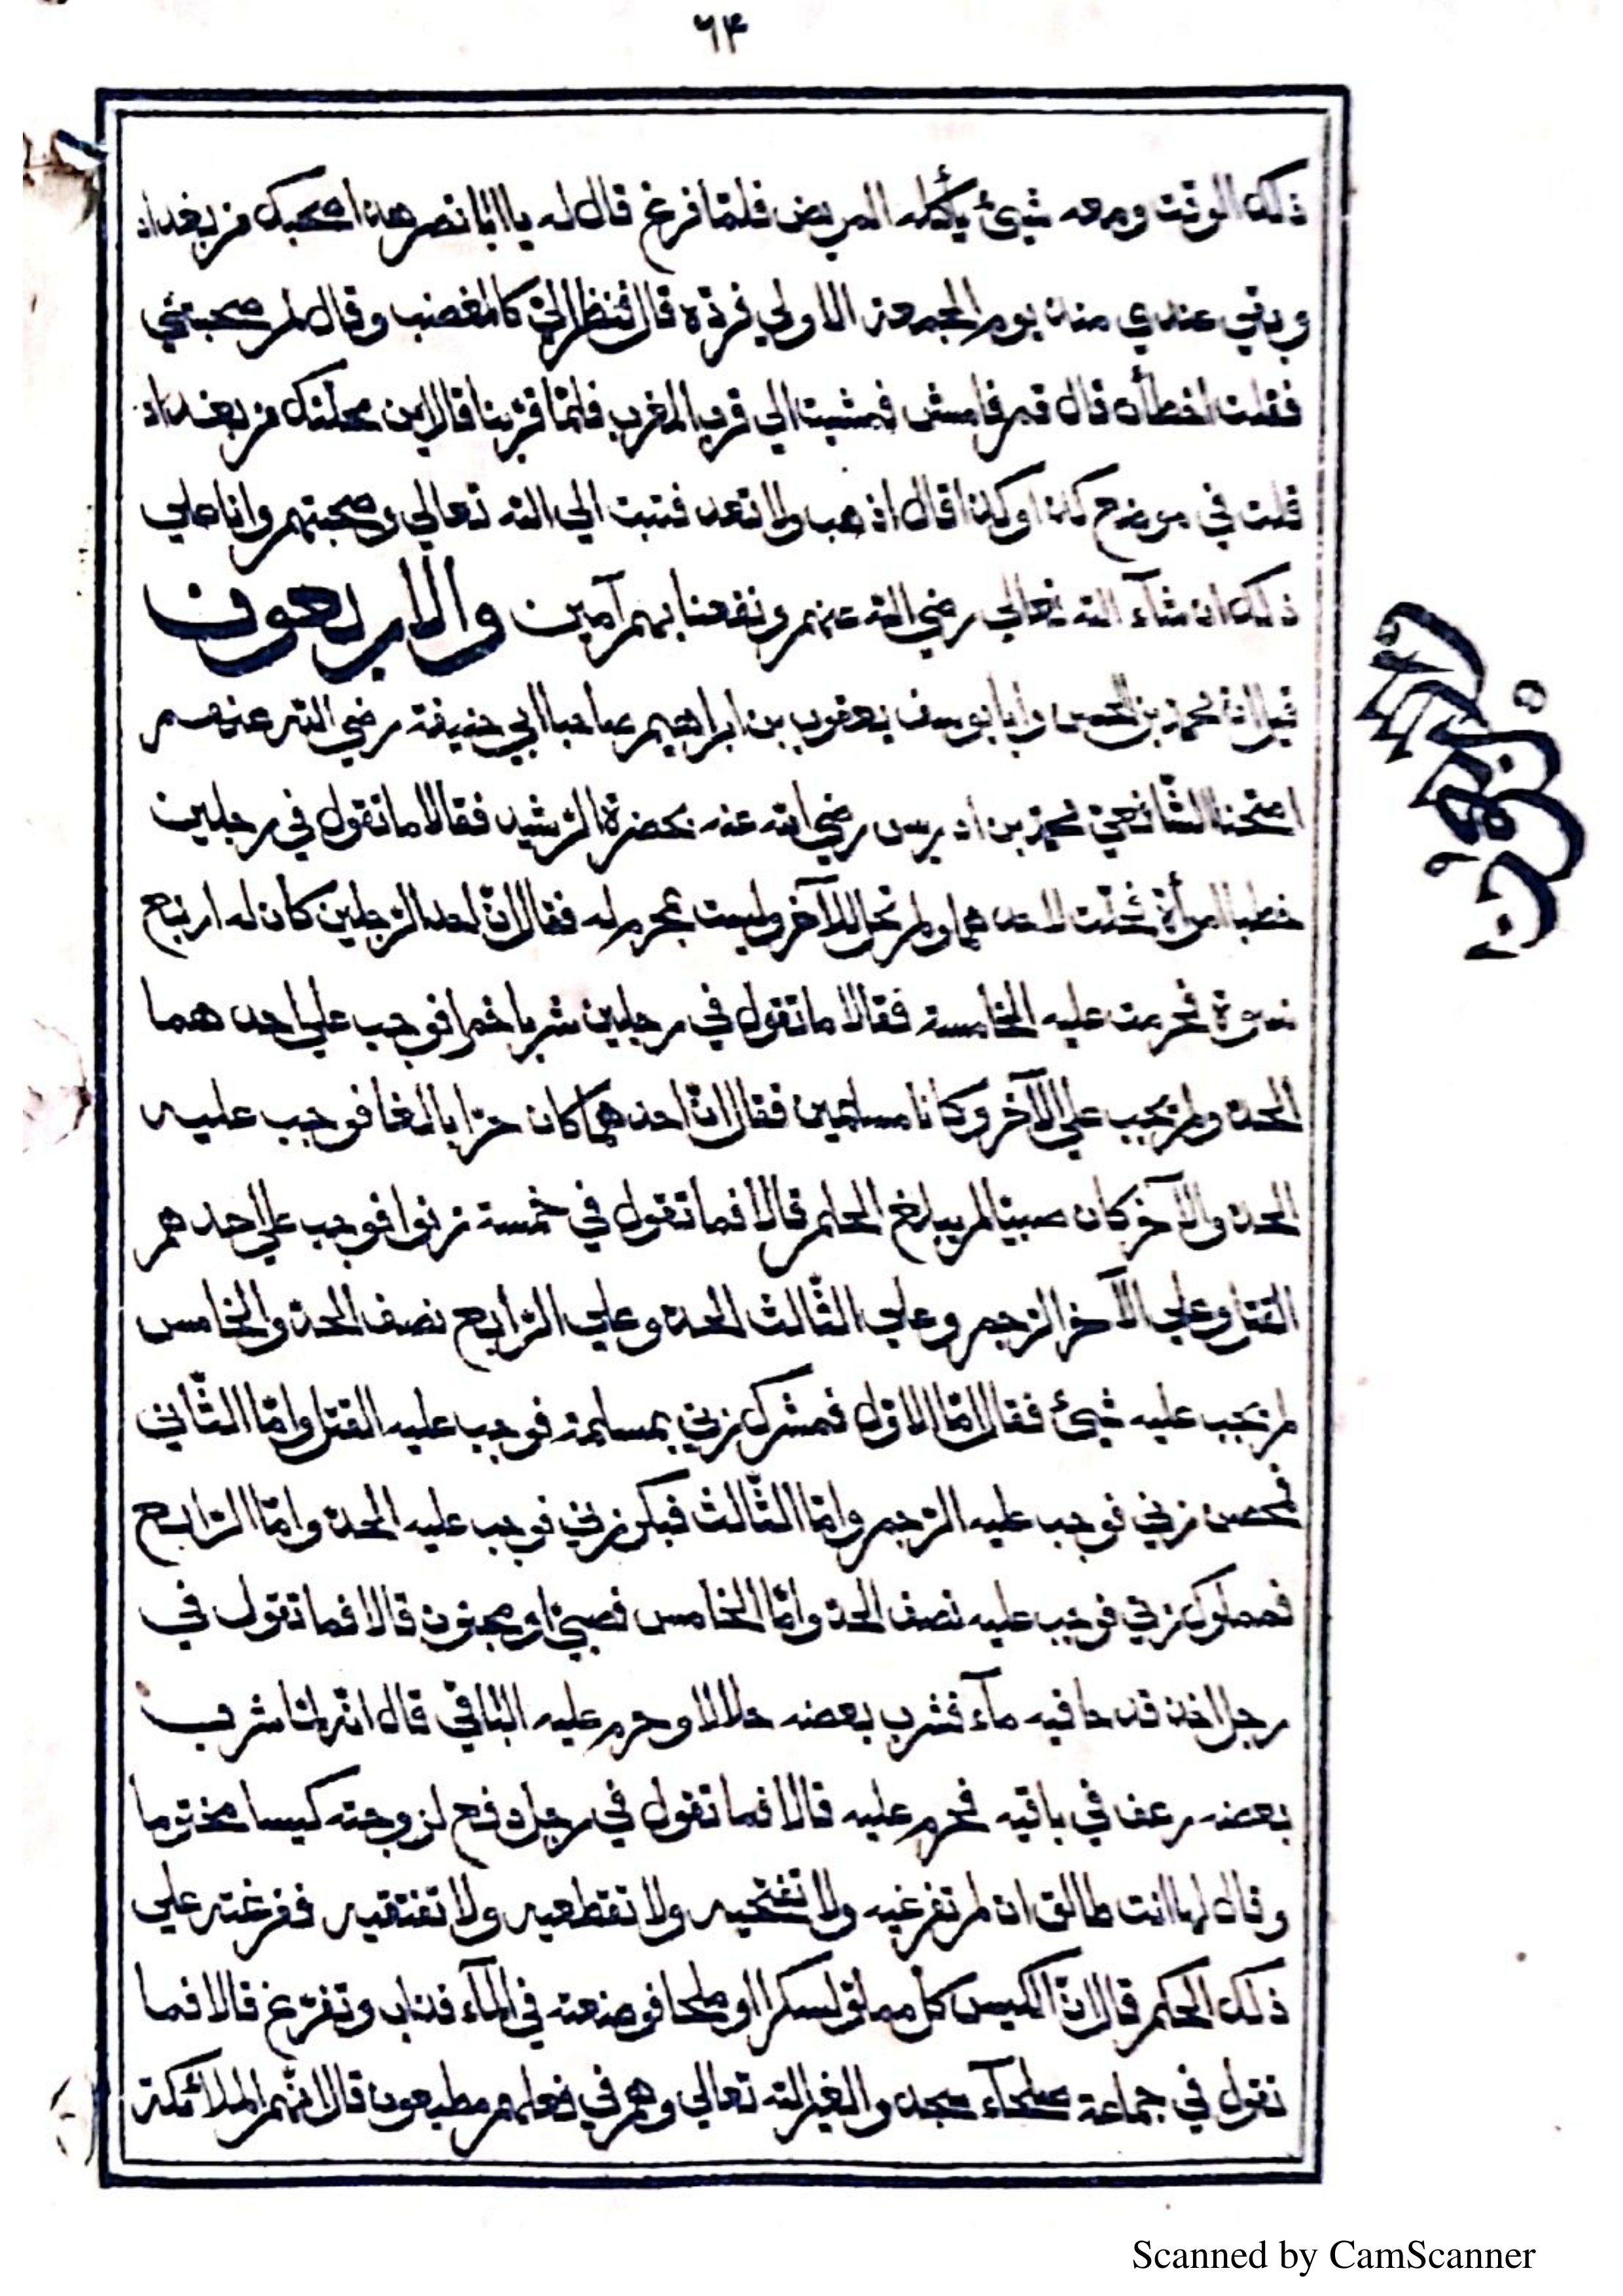 ٦٤
ذلك الوقت ومعه شيئ يأكله المريض فلمّا فرغ قال له يا ابا نصر هذا صحبك من بغداد
وبقي عندي منذ يوم الجمعة الاولي فردّه قال فنظر اليّ كالمغضب وقال لم صحبتني
فقلت اخطأت قال قم فامش فمشيت الي قرب المغرب فلمّا قربنا قال اين محلتك من بغداد
قلت في موضع كذا وكذا قال اذهب ولا تعد فتبت الي الله تعالي وصحبتهم وانا علي
ذلك ان شآء الله تعالي رضي الله عنهم ونفعنا بهم آمين والاربعون
قيل انّ محمد بن الحسن وابا يوسف يعقوب بن ابراهيم صاحبا ابي حنيفة رضي الله عنهم
امتحنا الشّافعيّ محمد بن ادريس رضي الله عنه بحضرة الرّشيد فقالا ما تقول في رجلين
خطبا امرأة فحلّت لاحدهما ولم تحل للآخر وليست بمحرم له فقال انّ احد الرّجلين كان له اربع
نسوة فحرمت عليه الخامسة فقالا ما تقول في رجلين شربا خمرا فوجب علي احدهما
الحدّ ولم يجب علي الآخر وكانا مسلمين فقال انّ احدهما كان حرّا بالغا فوجب عليه
الحدّ والآخر كان صبيّا لم يبلغ الحلم قالا فما تقول في خمسة زنوا فوجب علي احدهم
القتل وعلي الآخر الرّجم وعلي الثّالث الحدّ وعلي الرّابع نصف الحدّ والخامس
لم يجب عليه شيئ فقال امّا الاوّل فمشرك زني بمسلمة فوجب عليه القتل وامّا الثّاني
فمحصن زني فوجب عليه الرّجم وامّا الثّالث فبكر زني فوجب عليه الحدّ وامّا الرّابع
فمملوك زني فوجب عليه نصف الحدّ وامّا الخامس فصبيّ او مجنون قالا فما تقول في
رجل اخذ قدحا فيه مآء فشرب بعضه حلالا وحرم عليه الباقي قال انّه لمّا شرب
بعضه رعف في باقيه فحرم عليه قالا فما تقول في رجل دفع لزوجته كيسا مختوما
وقال لها انت طالق ان لم تفرغيه ولا تفتحيه ولا تقطعيه ولا تفتقيه ففرغته علي
ذلك الحكم قال انّ الكيس كان مملؤ سكرا او ملحا فوضعته في المآء فذاب وتفرّغ قالا فما
تقول في جماعة صلحآء سجدوا لغير الله تعالي وهم في فعلهم مطيعون قال انّهم الملائكة
الاربعون
Scanned by CamScanner